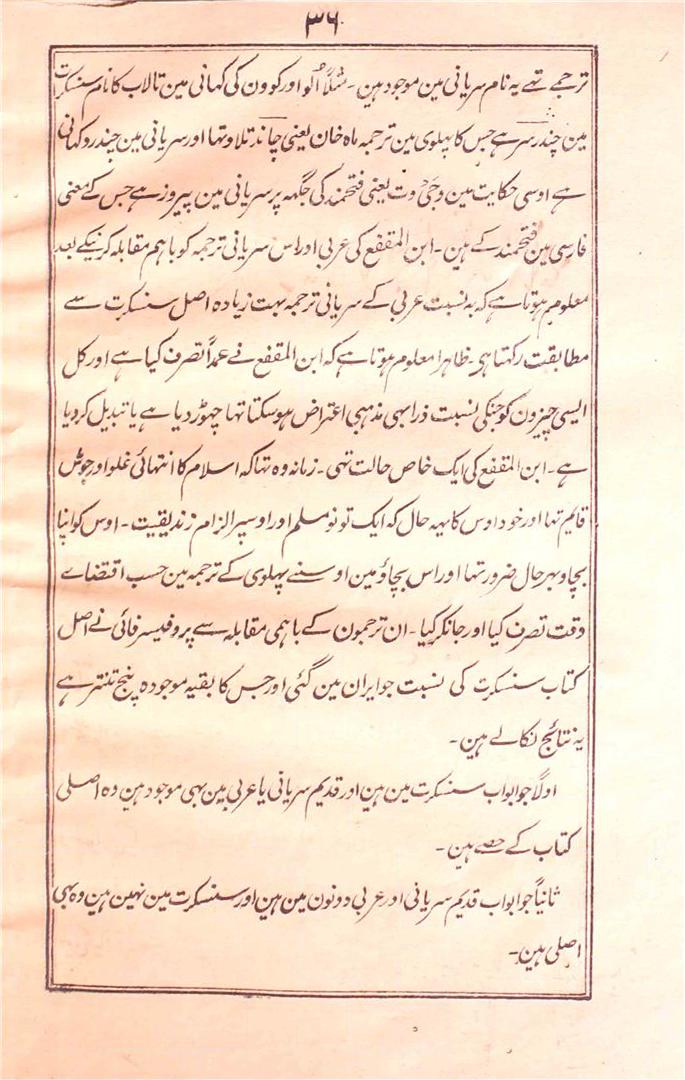 ۳۶
ترجمے تہے یہ نام سریانی مین موجود ہین ۔ مثلاً اُلّو اور کوون کی کہانی مین تالاب کا نام سنسکرت
مین چندر سر ہے جس کا پہلوی مین ترجمہ ماہ خان یعنی چاند تلاو تہا اور سریانی مین چندر و کہانی
ہے اوسی حکایت مین وجَیْ وت یعنی فتحمند کی جگہہ پر سریانی مین پیروز ہے جس کے معنی
فارسی مین فتحمند کے ہین ۔ ابن المقفع کی عربی اور اس سریانی ترجمہ کو باہم مقابلہ کرنیکے بعد
معلوم ہوتا ہے کہ بہ نسبت عربی کے سریانی ترجمہ بہت زیادہ اصل سنسکرت سے
مطابقت رکہتا ہی ۔ ظاہرا معلوم ہوتا ہے کہ ابن المقفع نے عمداً تصرف کیا ہے اور کل
ایسی چیزون کو جنکی نسبت ذرا بہی مذہبی اعتراض ہو سکتا تہا چہوڑ دیا ہے یا تبدیل کر دیا
ہے ۔ ابن المقفع کی ایک خاص حالت تہی ۔ زمانہ وہ تہا کہ اسلام کا انتہائی غلو اور جوش
قایم تہا اور خود اوس کا یہہ حال کہ ایک تو نو مسلم اور اوسپر الزام زندیقیت ۔ اوس کو اپنا
بچاو بہر حال ضرور تہا اور اس بچاؤ مین اوسنے پہلوی کے ترجمہ مین حسب اقتضاے
وقت تصرف کیا اور جانکر کیا ۔ ان ترجمون کے باہمی مقابلہ سے پروفیسر فائی نے اصل
کتاب سنسکرت کی نسبت جو ایران مین گئی اور جس کا بقیہ موجودہ پنج تنتر ہے
یہ نتائج نکالے ہین ۔
اولاً جو ابواب سنسکرت مین ہین اور قدیم سریانی یا عربی مین بہی موجود ہین وہ اصلی
کتاب کے حصے ہین ۔
ثانیاً جو ابواب قدیم سریانی اور عربی دونون مین ہین اور سنسکرت مین نہین ہین وہ بہی
اصلی ہین ۔